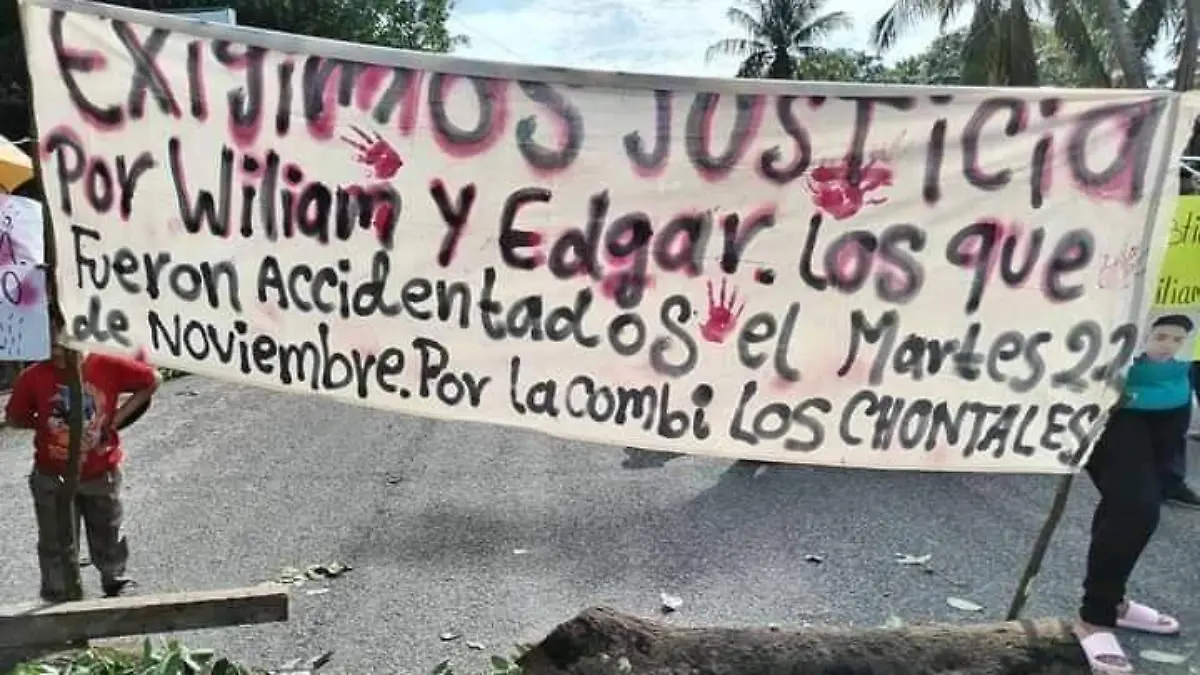 Exigimos Justicia
Por Wiliam Y Edgar. Los que
Fueron Accidentados el Martes 22
de Noviembre. Por La combi Los CHONTALES